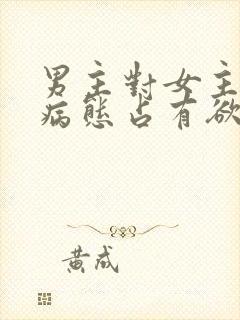 男主對女主
病態占有欲
黃成